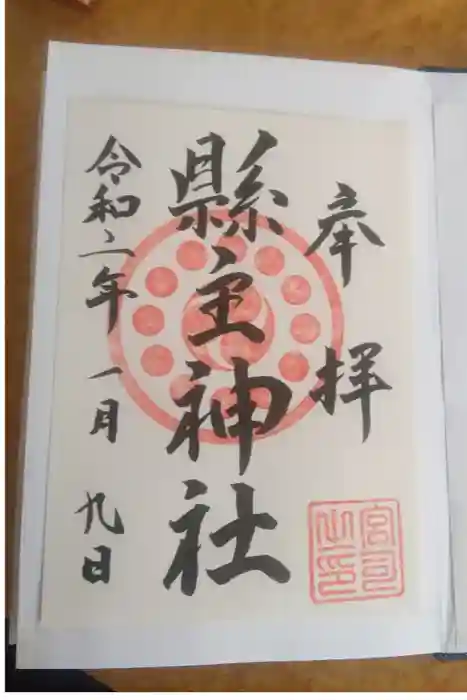 奉拝
縣主神社
令和二年一月九日
宮司之印